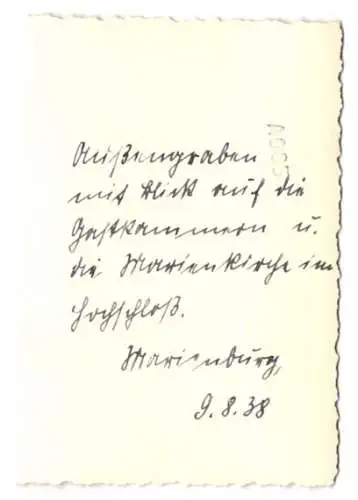 Außengraben
mit Blick auf die
Gastkammern u.
die Marienkirche im
Hochschloß.
Marienburg,
9.8.38